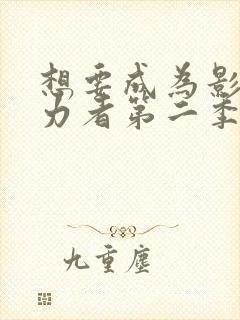 想要成为影
力者第二季
九重尘